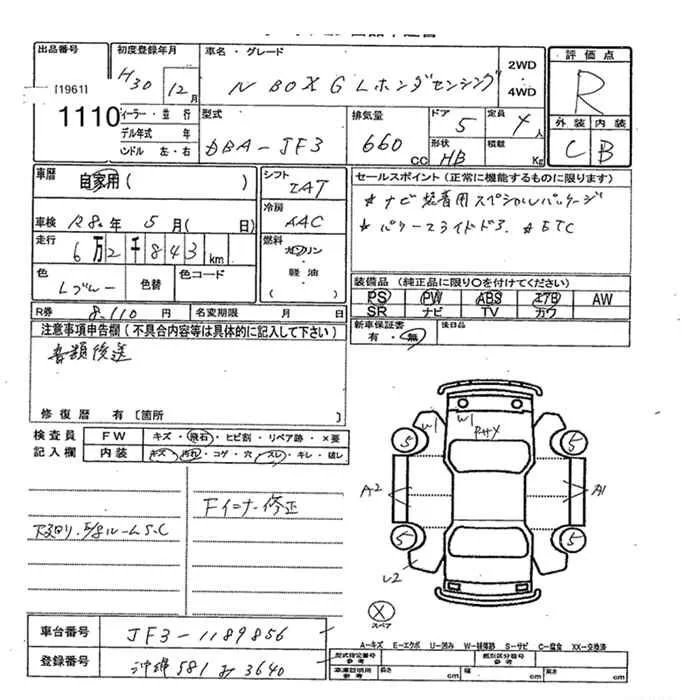 出品番号 初度登録年月 車名・グレード 評価点
[1961] H30 12月 N BOX G Lホンダセンシング 2WD・4WD R
1110
ディーラー・並行 型式 排気量 ドア 定員 外装 内装
モデル年式 年 DBA-JF3 660cc 5 4人 C B
ハンドル 左・右 形状 HB 積載 Kg
車歴 自家用 ( ) シフト IAT セールスポイント(正常に機能するものに限ります)
車検 R8年 5月( 日) 冷房 AAC ＃ナビ装着用スペシャルパッケージ
走行 6万2千843km 燃料 ガソリン・軽油 ( ) ＃パワースライドドア ＃ETC
色 Lブルー 色替 色コード 装備品(純正品に限り○を付けてください)
PS PW ABS エアB AW
R券 8,110円 名変期限 月 日 SR ナビ TV カワ
注意事項申告欄(不具合内容等は具体的に記入して下さい) 新車保証書 有・無 後日品
書類後送
修復歴 有〔箇所 〕
検査員記入欄 FW キズ・飛石・ヒビ割・リペア跡・×要
内装 キズ・汚れ・コゲ・穴・スレ・キレ・破レ
W1 W1
5 5
A2 A1
Fインナー修正
下廻り、
5 5
U2
X
スペア
A-キズ E-エクボ U-凹み W-補修跡 S-サビ C-腐食 XX-交換済
車台番号 JF3-1189856
登録番号 沖縄 581 み 3640
型式指定番号 参考 類別区分番号 参考
車庫証明用 参考 長さ cm 幅 cm 高さ cm